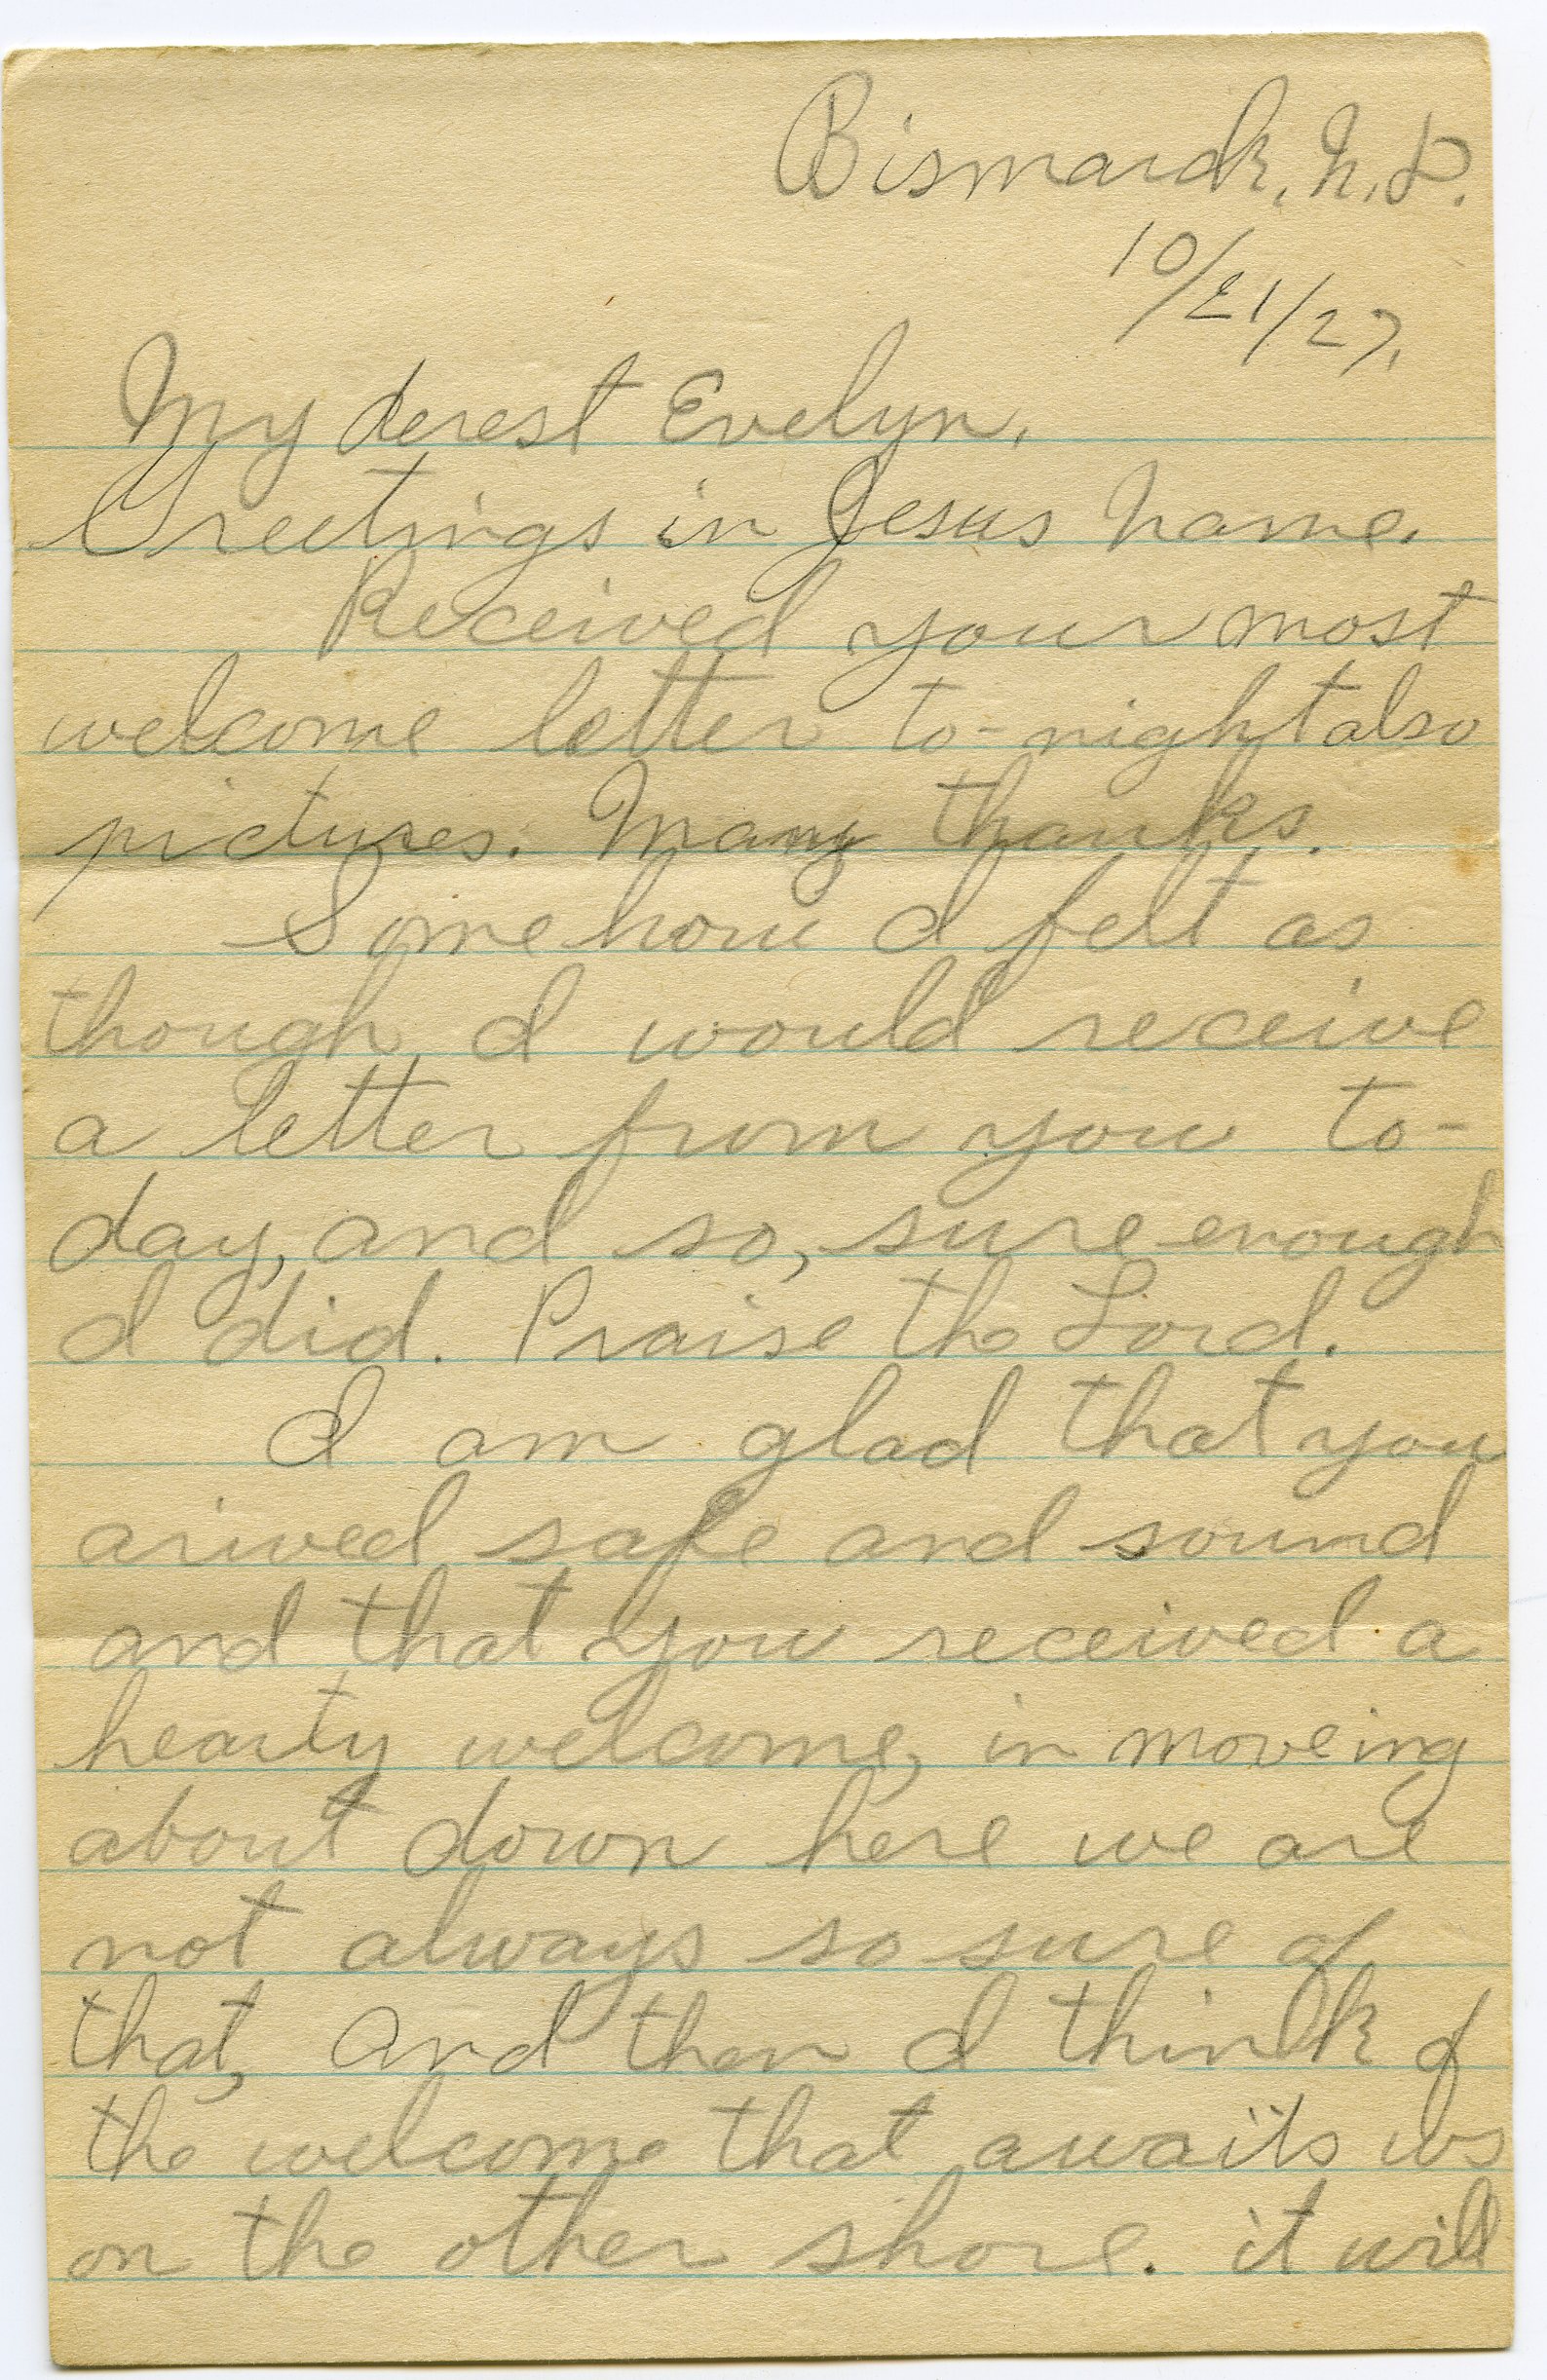 Bismarck, N.D.
10/21/27.
My derest Evelyn,
Greetings in Jesus name.
Received your most
welcome letter to-night also
pictures. Many thanks.
Somehow I felt as
though I would receive
a letter from you to-
day, and so, sure enough
I did. Praise the Lord.
I am glad that you
arived safe and sound
and that you received a
hearty welcome, in moveing
about down here we are
not always so sure of
that, And then I think of
the welcome that awaits us
on the other shore. it will